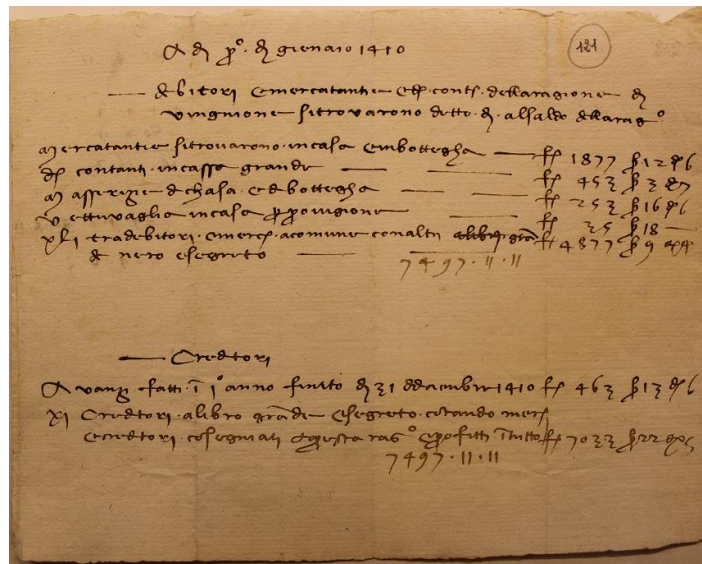 A dì pº. di giennaio 1410
121
debitori e merchatantie e dr. conti. della ragione di
vingnione si trovarono detto dì. al saldo della ragº
Merchatantie si trovarono. in casa e in bottegha — fr 1877 s 12 d 6
Dr contanti. in cassa grande — fr 453 s 3 d 7
Masserizie di chasa. e di bottegha — fr 253 s 16 d 6
Vettuvaglia in casa pr provigione — fr 35 s 18 —
XLI tra debitori. e merc. a comune con altri fr 4877 s 9 d 4
nero e segreto —
7497.11.11
— Creditori
Avanzi. fatti. ī 1º anno finito dì 31 1410 fr 463 s 13 d 6
XI Creditori. a libro grande e segreto.
e creditori questa ragº fr 7033 s 22 d 5
7497.11.11